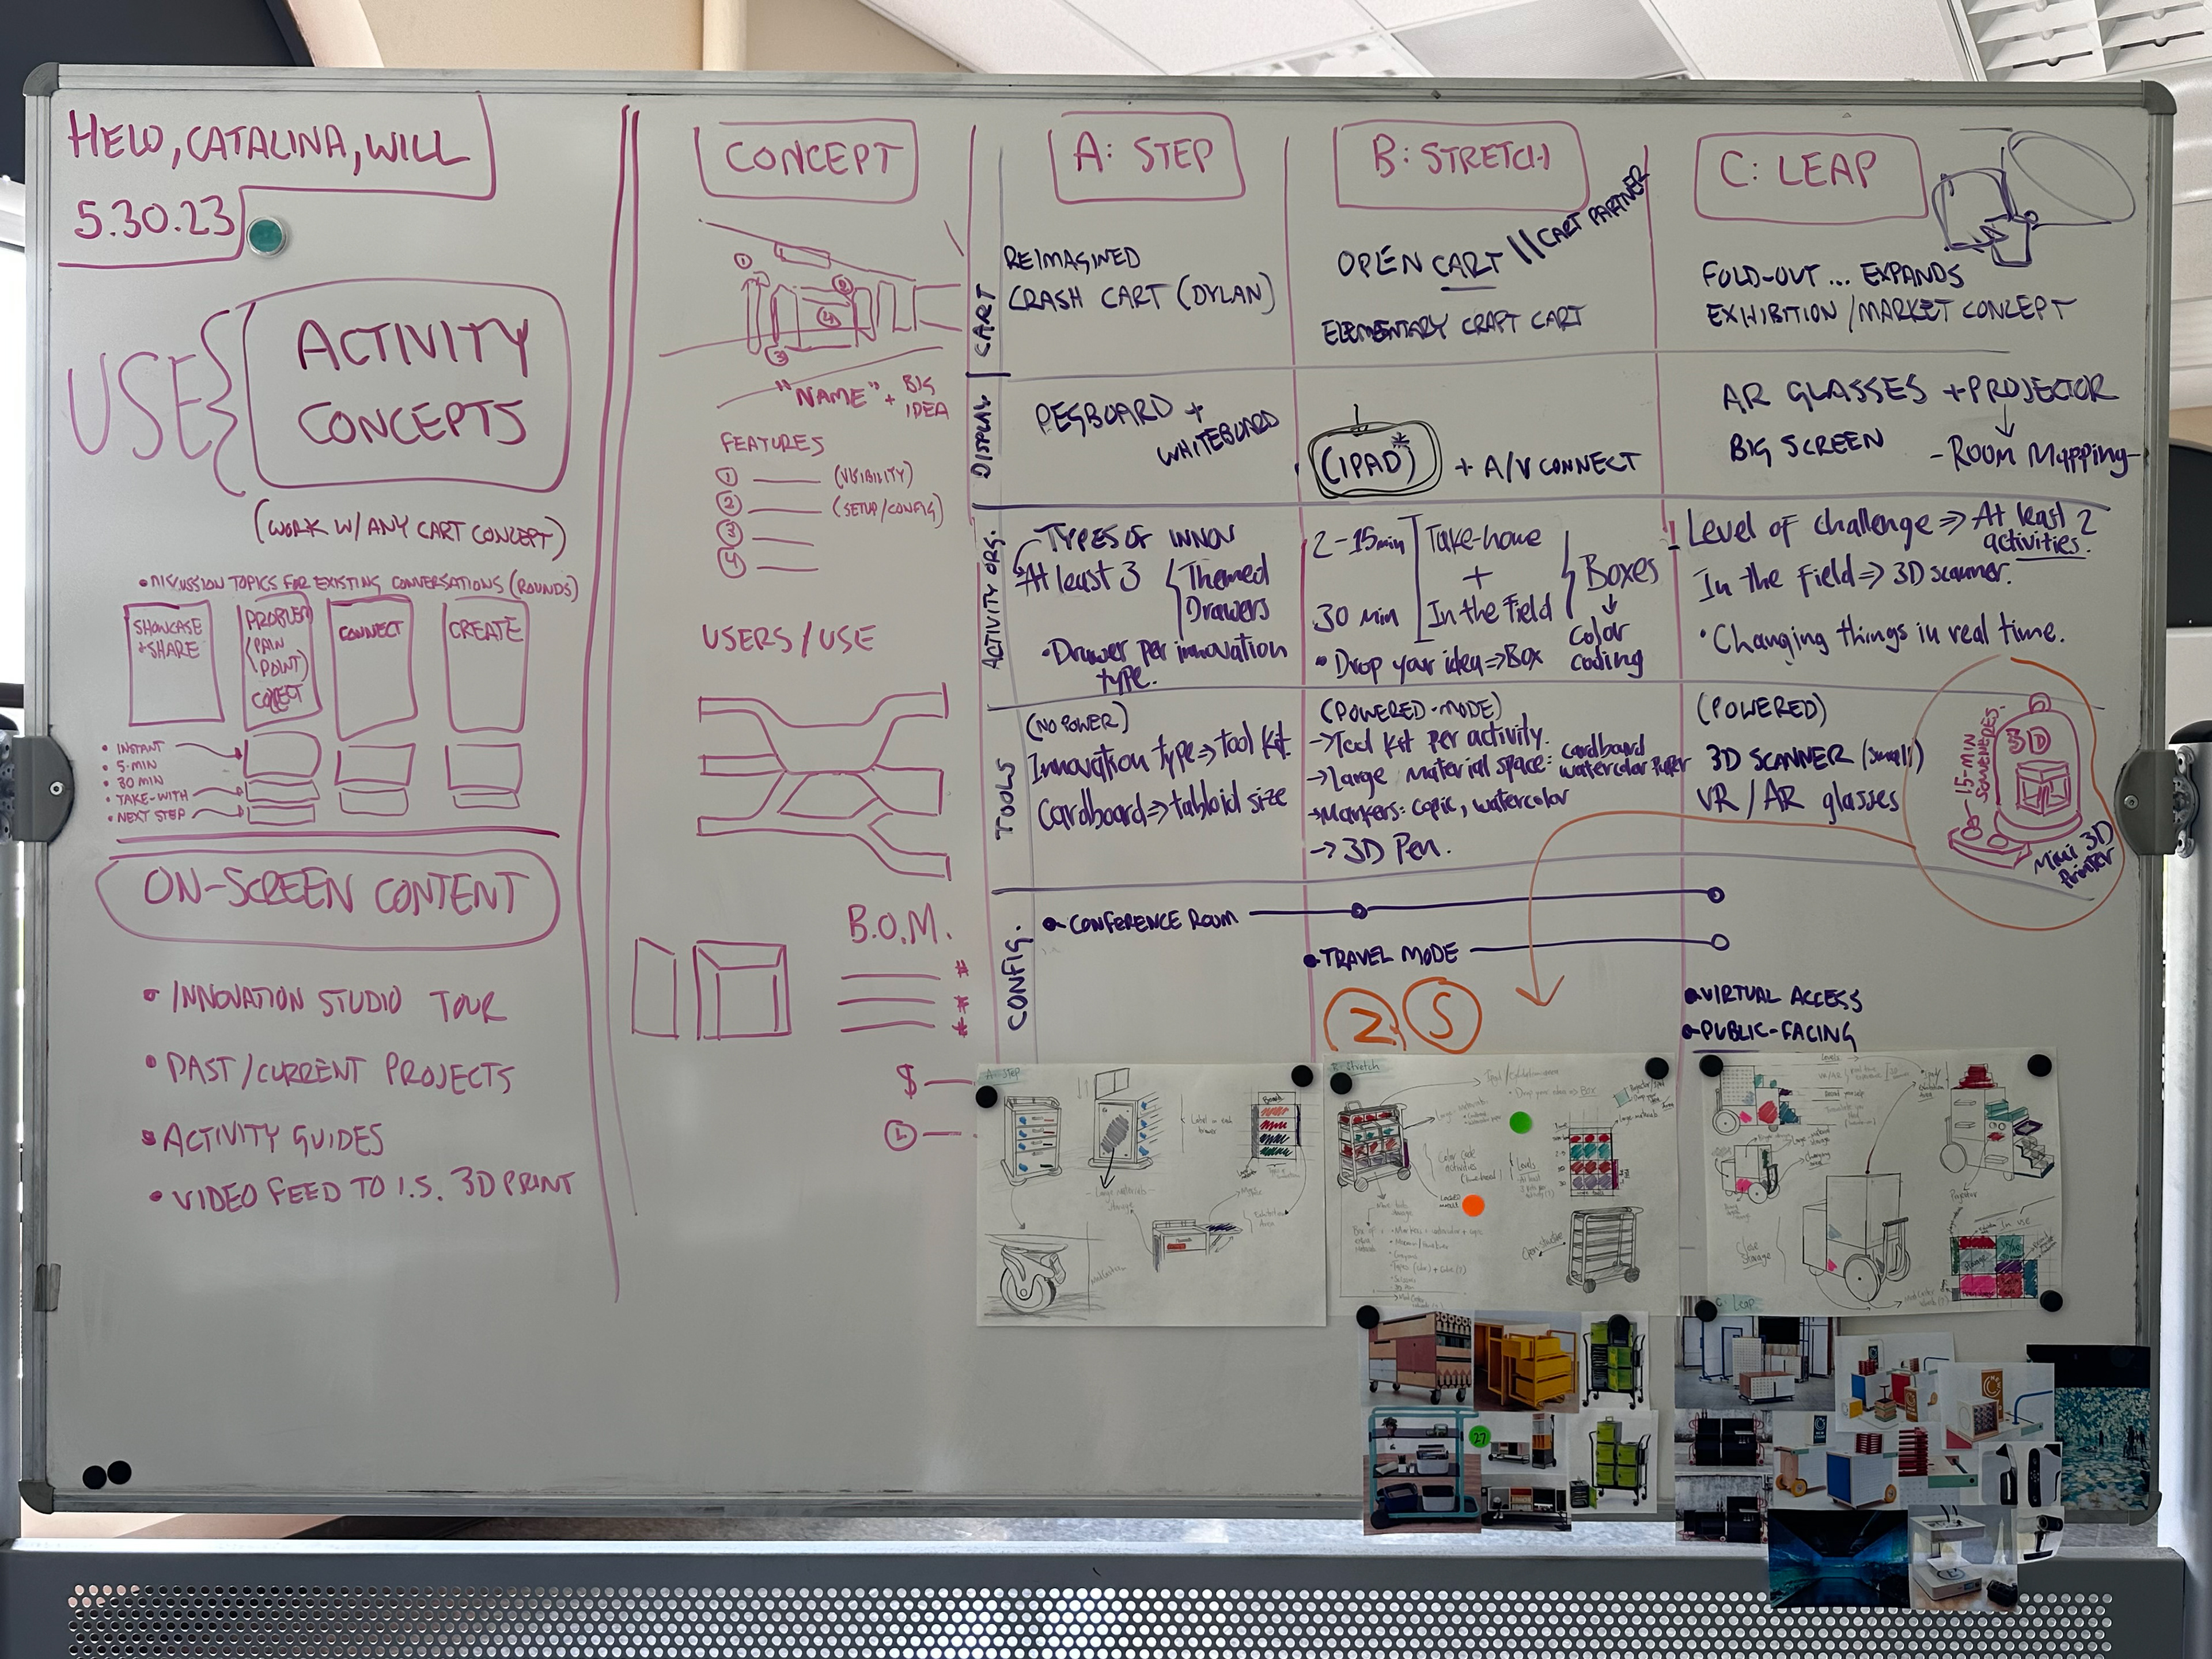 HELO, CATALINA, WILL
5.30.23
USE
ACTIVITY
CONCEPTS
(WORK W/ ANY CART CONCEPT)
• DISCUSSION TOPICS FOR EXISTING CONVERSATIONS (ROUNDS)
SHOWCASE
+ SHARE
PROBLEM
(PAIN
POINT)
COLLECT
CONNECT
CREATE
• INSTANT
• 5-MIN
• 30 MIN
• TAKE-WITH
• NEXT STEP
ON-SCREEN CONTENT
• INNOVATION STUDIO TOUR
• PAST/CURRENT PROJECTS
• ACTIVITY GUIDES
• VIDEO FEED TO I.S. 3D PRINT
CONCEPT
1
2
4
3
"NAME" + BIG
IDEA
FEATURES
1 (VISIBILITY)
2 (SETUP/CONFIG)
3
4
USERS/USE
B.O.M.
#
#
#
$
A: STEP
B: STRETCH
C: LEAP
CART
REIMAGINED
CRASH CART (DYLAN)
OPEN CART // CART PARTNER
ELEMENTARY CRAFT CART
FOLD-OUT... EXPANDS
EXHIBITION/MARKET CONCEPT
DISPLAY
PEGBOARD +
WHITEBOARD
(IPAD)* + A/V CONNECT
AR GLASSES + PROJECTOR
BIG SCREEN
- ROOM MAPPING -
ACTIVITY ORG.
TYPES OF INNOV
At least 3
Themed
Drawers
• Drawer per innovation
type.
2-15 min
Take-home
+
30 min
In the field
Boxes
Color
coding
• Drop your idea => Box
Level of challenge => At least 2
activities.
In the field => 3D scanner.
• Changing things in real time.
TOOLS
(NO POWER)
Innovation type => tool kit
Cardboard => tabloid size
(POWERED-MODE)
-> Tool kit per activity.
-> Large material space: cardboard
watercolor paper
-> Markers: copic, watercolor
-> 3D Pen.
(POWERED)
3D SCANNER (small)
VR/AR glasses
15-MIN
SOUVENIRES.
3D
Mini 3D
Printer
CONFIG.
• CONFERENCE ROOM
• TRAVEL MODE
• VIRTUAL ACCESS
• PUBLIC-FACING
2 S
A- Step
Label in each
drawer
Large materials
storage
B- Stretch
• Drop your idea => Box
Large materials
Color code
activities
Levels
Open structure
VR/AR
Close
Storage
In use
C- Leap
27